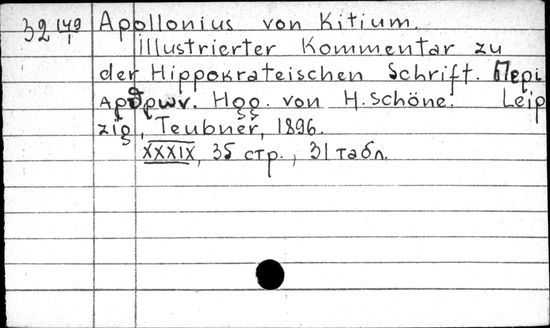 32 149/1 Apollonius von Kitium.
Illustrierter Kommentar zu
der Hippokrateischen Schrift. Пepi
apθpwv. Hgg. von H. Schöne. Leip
zig, Teubner, 1896.
XXXIX, 35 стр., 31 табл.